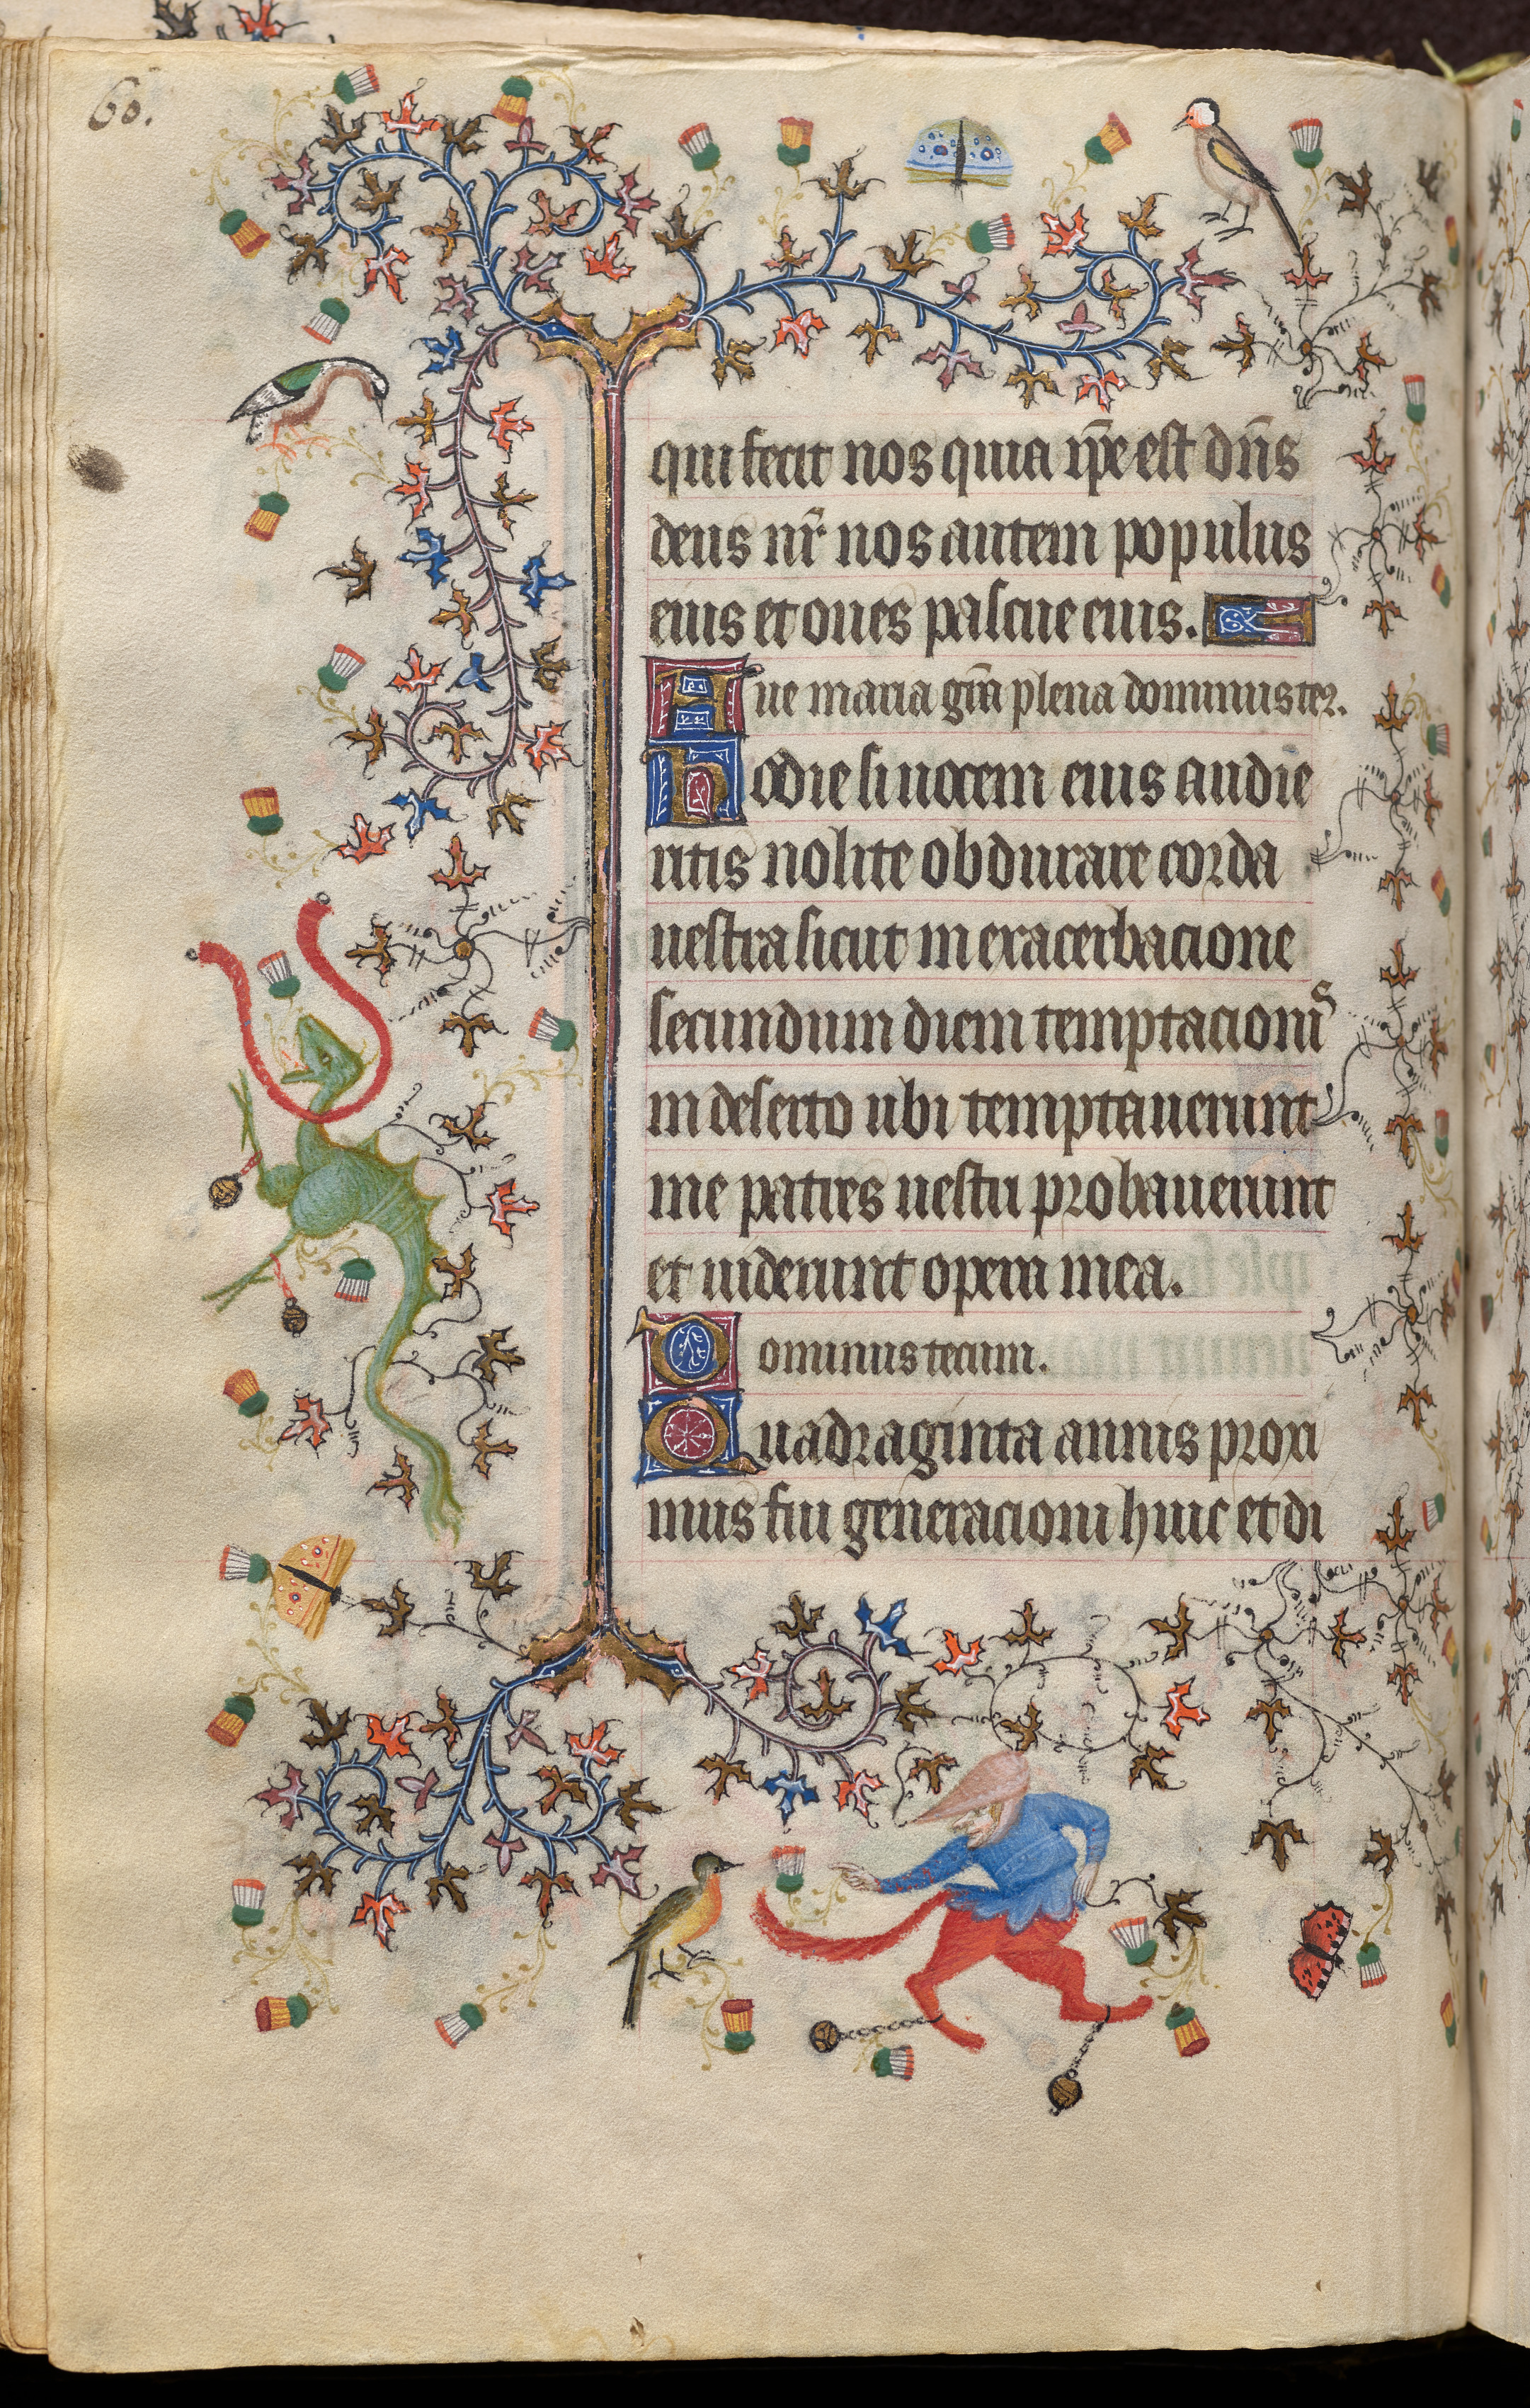 60.
qui fecit nos quia ip̄e est dn̄s
deus nr̄ nos autem populus
eius et oues pascue eius.
Aue maria grā plena dominus teꝛ.
Hodie si uocem eius audie
ritis nolite obdurare corda
uestra sicut in exacerbacione
secundum diem temptacionis
in deserto ubi temptauerunt
me patres uestri probauerunt
et uiderunt opera mea.
Dominus tecum.
Quadraginta annis proxi
mus fui generacioni huic et di